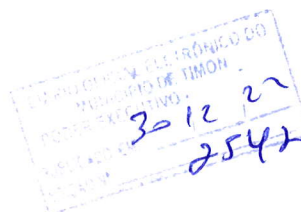 DIÁRIO OFICIAL ELETRÔNICO DO
MUNICÍPIO DE TIMON
PODER EXECUTIVO
30 12 22
2542